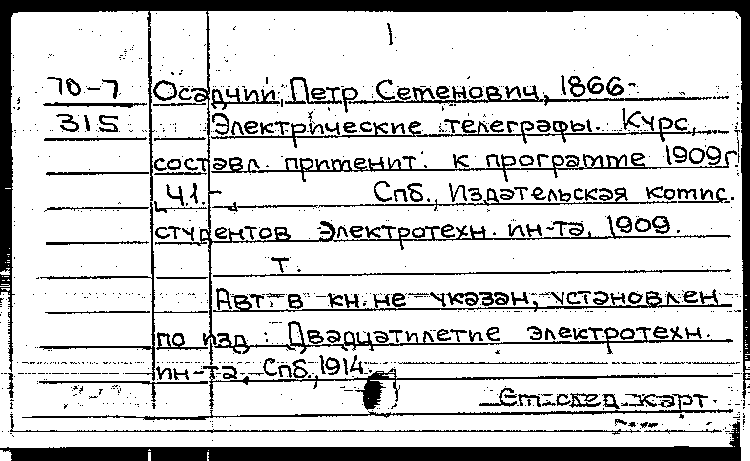 1
70-7 Осадчий, Петр Семенович, 1866-
315 Электрические телеграфы. Курс,
составл. применит. к программе 1909г
Ч.1.- Спб., Издательская комис.
студентов Электротехн. ин-та, 1909.
т.
Авт. в кн. не указан, установлен
по изд.: Двадцатилетие электротехн.
ин-та, Спб., 1914.
См. след. карт.